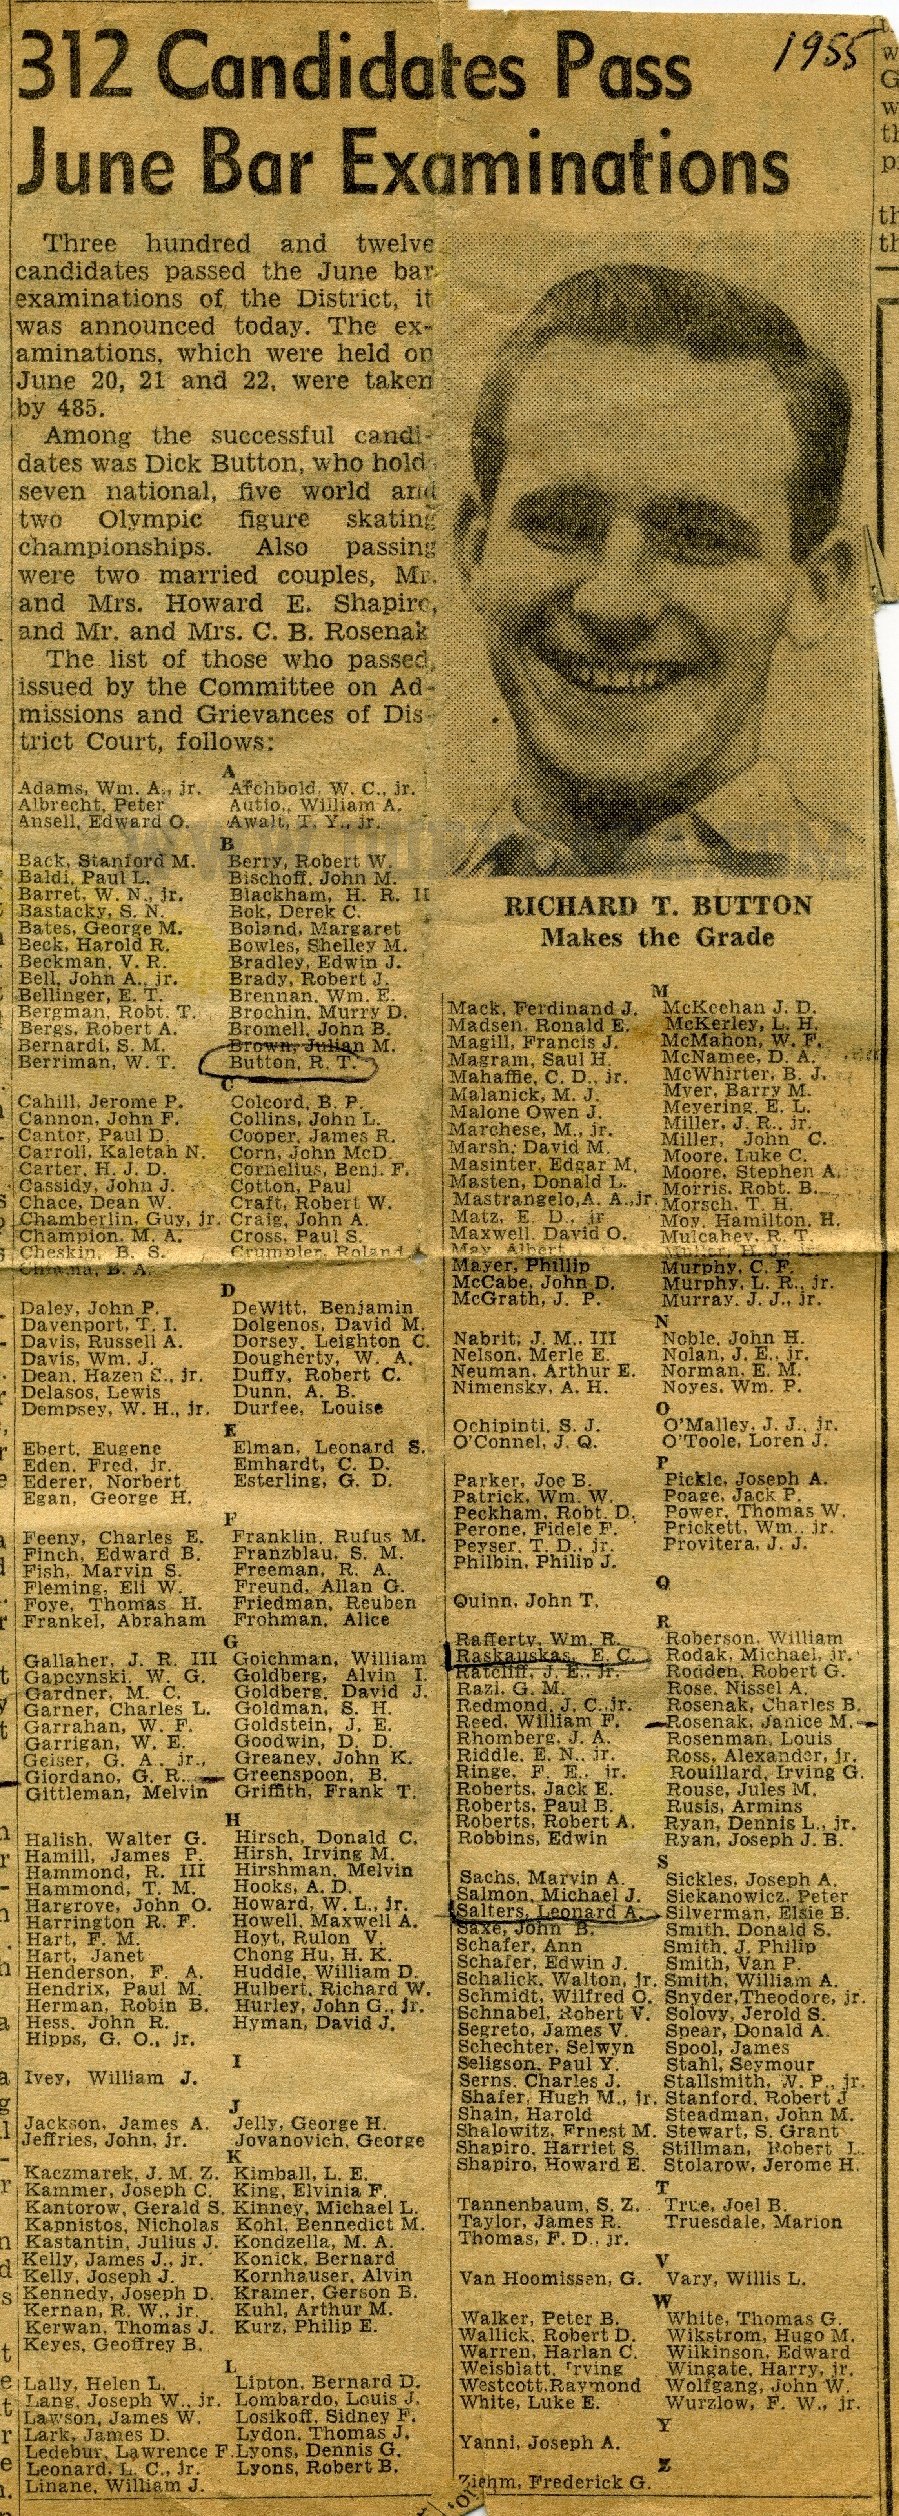 312 Candidates Pass
June Bar Examinations
1955
Three hundred and twelve
candidates passed the June bar
examinations of the District, it
was announced today. The ex-
aminations, which were held on
June 20, 21 and 22, were taken
by 485.
Among the successful candi-
dates was Dick Button, who hold
seven national, five world and
two Olympic figure skating
championships. Also passing
were two married couples, Mr.
and Mrs. Howard E. Shapiro,
and Mr. and Mrs. C. B. Rosenak
The list of those who passed,
issued by the Committee on Ad-
missions and Grievances of Dis-
trict Court, follows:
RICHARD T. BUTTON
Makes the Grade
A
Adams, Wm. A., jr. Archbold, W. C., jr.
Albrecht, Peter Autio., William A.
Ansell, Edward O. Awalt, T. Y., jr.
B
Back, Stanford M. Berry, Robert W.
Baldi, Paul L. Bischoff, John M.
Barret, W. N., jr. Blackham, H. R. II
Bastacky, S. N. Bok, Derek C.
Bates, George M. Boland, Margaret
Beck, Harold R. Bowles, Shelley M.
Beckman, V. R. Bradley, Edwin J.
Bell, John A., jr. Brady, Robert J.
Bellinger, E. T. Brennan, Wm. E.
Bergman, Robt. T. Brochin, Murry D.
Bergs, Robert A. Bromell, John B.
Bernardi, S. M. Brown, Julian M.
Berriman, W. T. Button, R. T.
C
Cahill, Jerome P. Colcord, B. P.
Cannon, John F. Collins, John L.
Cantor, Paul D. Cooper, James R.
Carroll, Kaletah N. Corn, John McD.
Carter, H. J. D. Cornelius, Benj. F.
Cassidy, John J. Cotton, Paul
Chace, Dean W. Craft, Robert W.
Chamberlin, Guy, jr. Craig, John A.
Champion, M. A. Cross, Paul S.
Cheskin, B. S. Crumpler, Roland
B. A.
D
Daley, John P. DeWitt, Benjamin
Davenport, T. I. Dolgenos, David M.
Davis, Russell A. Dorsey, Leighton C.
Davis, Wm. J. Dougherty, W. A.
Dean, Hazen C., jr. Duffy, Robert C.
Delasos, Lewis Dunn, A. B.
Dempsey, W. H., jr. Durfee, Louise
E
Ebert, Eugene Elman, Leonard S.
Eden, Fred, jr. Emhardt, C. D.
Ederer, Norbert Esterling, G. D.
Egan, George H.
F
Feeny, Charles E. Franklin, Rufus M.
Finch, Edward B. Franzblau, S. M.
Fish, Marvin S. Freeman, R. A.
Fleming, Eli W. Freund, Allan G.
Foye, Thomas H. Friedman, Reuben
Frankel, Abraham Frohman, Alice
G
Gallaher, J. R. III Goichman, William
Gapcynski, W. G. Goldberg, Alvin I.
Gardner, M. C. Goldberg, David J.
Garner, Charles L. Goldman, S. H.
Garrahan, W. F. Goldstein, J. E.
Garrigan, W. E. Goodwin, D. D.
Geiser, G. A., jr., Greaney, John K.
Giordano, G. R. Greenspoon, B.
Gittleman, Melvin Griffith, Frank T.
H
Halish, Walter G. Hirsch, Donald C.
Hamill, James P. Hirsh, Irving M.
Hammond, R. III Hirshman, Melvin
Hammond, T. M. Hooks, A. D.
Hargrove, John O. Howard, W. L., jr.
Harrington R. F. Howell, Maxwell A.
Hart, F. M. Hoyt, Rulon V.
Hart, Janet Chong Hu, H. K.
Henderson, F. A. Huddle, William D.
Hendrix, Paul M. Hulbert, Richard W.
Herman, Robin B. Hurley, John G., jr.
Hess, John R. Hyman, David J.
Hipps, G. O., jr.
I
Ivey, William J.
J
Jackson, James A. Jelly, George H.
Jeffries, John, jr. Jovanovich, George
K
Kaczmarek, J. M. Z. Kimball, L. E.
Kammer, Joseph C. King, Elvinia F.
Kantorow, Gerald S. Kinney, Michael L.
Kapnistos, Nicholas Kohl, Bennedict M.
Kastantin, Julius J. Kondzella, M. A.
Kelly, James J., jr. Konick, Bernard
Kelly, Joseph J. Kornhauser, Alvin
Kennedy, Joseph D. Kramer, Gerson B.
Kernan, R. W., jr. Kuhl, Arthur M.
Kerwan, Thomas J. Kurz, Philip E.
Keyes, Geoffrey B.
L
Lally, Helen L. Lipton, Bernard D.
Lang, Joseph W., jr. Lombardo, Louis J.
Lawson, James W. Losikoff, Sidney F.
Lark, James D. Lydon, Thomas J.
Ledebur, Lawrence F. Lyons, Dennis G.
Leonard, L. C., jr. Lyons, Robert B.
Linane, William J.
M
Mack, Ferdinand J. McKeehan J. D.
Madsen, Ronald E. McKerley, L. H.
Magill, Francis J. McMahon, W. F.
Magram, Saul H. McNamee, D. A.
Mahaffie, C. D., jr. McWhirter, B. J.
Malanick, M. J. Myer, Barry M.
Malone Owen J. Meyering, E. L.
Marchese, M., jr. Miller, J. R., jr.
Marsh, David M. Miller, John C.
Masinter, Edgar M. Moore, Luke C.
Masten, Donald L. Moore, Stephen A.
Mastrangelo, A. A., jr. Morris, Robt. B.
Matz, E. D., jr Morsch, T. H.
Maxwell, David O. Moy, Hamilton, H.
May, Albert Mulcahey, R. T.
Mayer, Phillip Murphy, C. F.
McCabe, John D. Murphy, L. R., jr.
McGrath, J. P. Murray, J. J., jr.
N
Nabrit, J. M., III Noble, John H.
Nelson, Merle E. Nolan, J. E., jr.
Neuman, Arthur E. Norman, E. M.
Nimensky, A. H. Noyes, Wm. P.
O
Ochipinti, S. J. O'Malley, J. J., jr.
O'Connel, J. Q. O'Toole, Loren J.
P
Parker, Joe B. Pickle, Joseph A.
Patrick, Wm. W. Poage, Jack P.
Peckham, Robt. D. Power, Thomas W.
Perone, Fidele F. Prickett, Wm., jr.
Peyser, T. D., jr. Provitera, J. J.
Philbin, Philip J.
Q
Quinn, John T.
R
Rafferty, Wm. R. Roberson, William
Raskauskas, E. C. Rodak, Michael, jr.
Ratcliff, J. E., jr. Rodden, Robert G.
Razl, G. M. Rose, Nissel A.
Redmond, J. C., jr. Rosenak, Charles B.
Reed, William F. Rosenak, Janice M.
Rhomberg, J. A. Rosenman, Louis
Riddle, E. N., jr. Ross, Alexander, jr.
Ringe, F. E., jr. Rouillard, Irving G.
Roberts, Jack E. Rouse, Jules M.
Roberts, Paul B. Rusis, Armins
Roberts, Robert A. Ryan, Dennis L., jr.
Robbins, Edwin Ryan, Joseph J. B.
S
Sachs, Marvin A. Sickles, Joseph A.
Salmon, Michael J. Siekanowicz, Peter
Salters, Leonard A. Silverman, Elsie B.
Saxe, John B. Smith, Donald S.
Schafer, Ann Smith, J. Philip
Schafer, Edwin J. Smith, Van P.
Schalick, Walton, jr. Smith, William A.
Schmidt, Wilfred O. Snyder, Theodore, jr.
Schnabel, Robert V. Solovy, Jerold S.
Segreto, James V. Spear, Donald A.
Schechter, Selwyn Spool, James
Seligson, Paul Y. Stahl, Seymour
Serns, Charles J. Stallsmith, W. P., jr.
Shafer, Hugh M., jr. Stanford, Robert J
Shain, Harold Steadman, John M.
Shalowitz, Ernest M. Stewart, S. Grant
Shapiro, Harriet S. Stillman, Robert L.
Shapiro, Howard E. Stolarow, Jerome H.
T
Tannenbaum, S. Z. True, Joel B.
Taylor, James R. Truesdale, Marion
Thomas, F. D., jr.
V
Van Hoomissen, G. Vary, Willis L.
W
Walker, Peter B. White, Thomas G.
Wallick, Robert D. Wikstrom, Hugo M.
Warren, Harlan C. Wilkinson, Edward
Weisblatt, Irving Wingate, Harry, jr.
Westcott, Raymond Wolfgang, John W.
White, Luke E. Wurzlow, F. W., jr.
Y
Yanni, Joseph A.
Z
Ziehm, Frederick G.